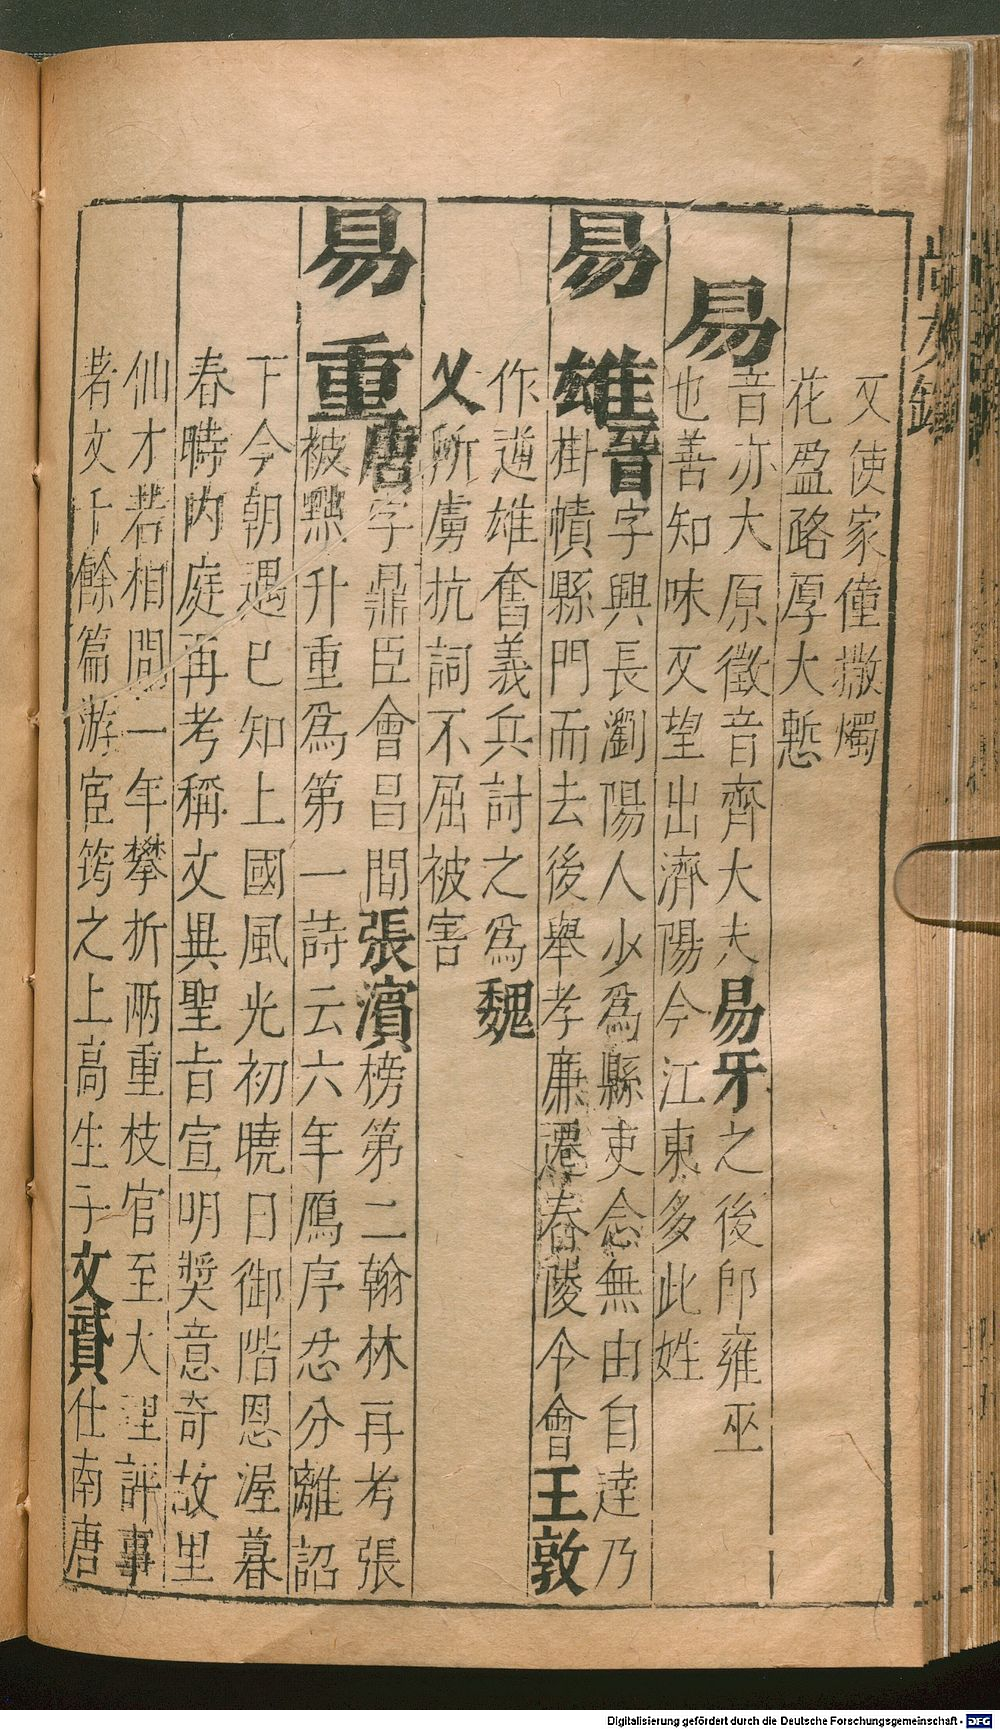 又使家僮撒燭
花盈路厚大慙
易
音亦大原徵音齊大夫易牙之後卽雍巫
也善知味又望出濟陽今江東多此姓
易雄晉字興長瀏陽人少爲縣吏念無由自達乃
掛幘縣門而去後舉孝廉遷舂陵令會王敦
作逆雄奮義兵討之爲魏
乂所虜抗詞不屈被害
易重唐字鼎臣會昌間張濆榜第二翰林再考張
被黜升重爲第一詩云六年鴈序忍分離詔
下今朝遇已知上國風光初曉日御階恩渥暮
春時內庭再考稱文異聖旨宣明奬意奇故里
仙才若相問一年攀折兩重枝官至大理評事
著文千餘篇游宦筠之上高生子文贇仕南唐
Digitalisierung gefördert durch die Deutsche Forschungsgemeinschaft - DFG